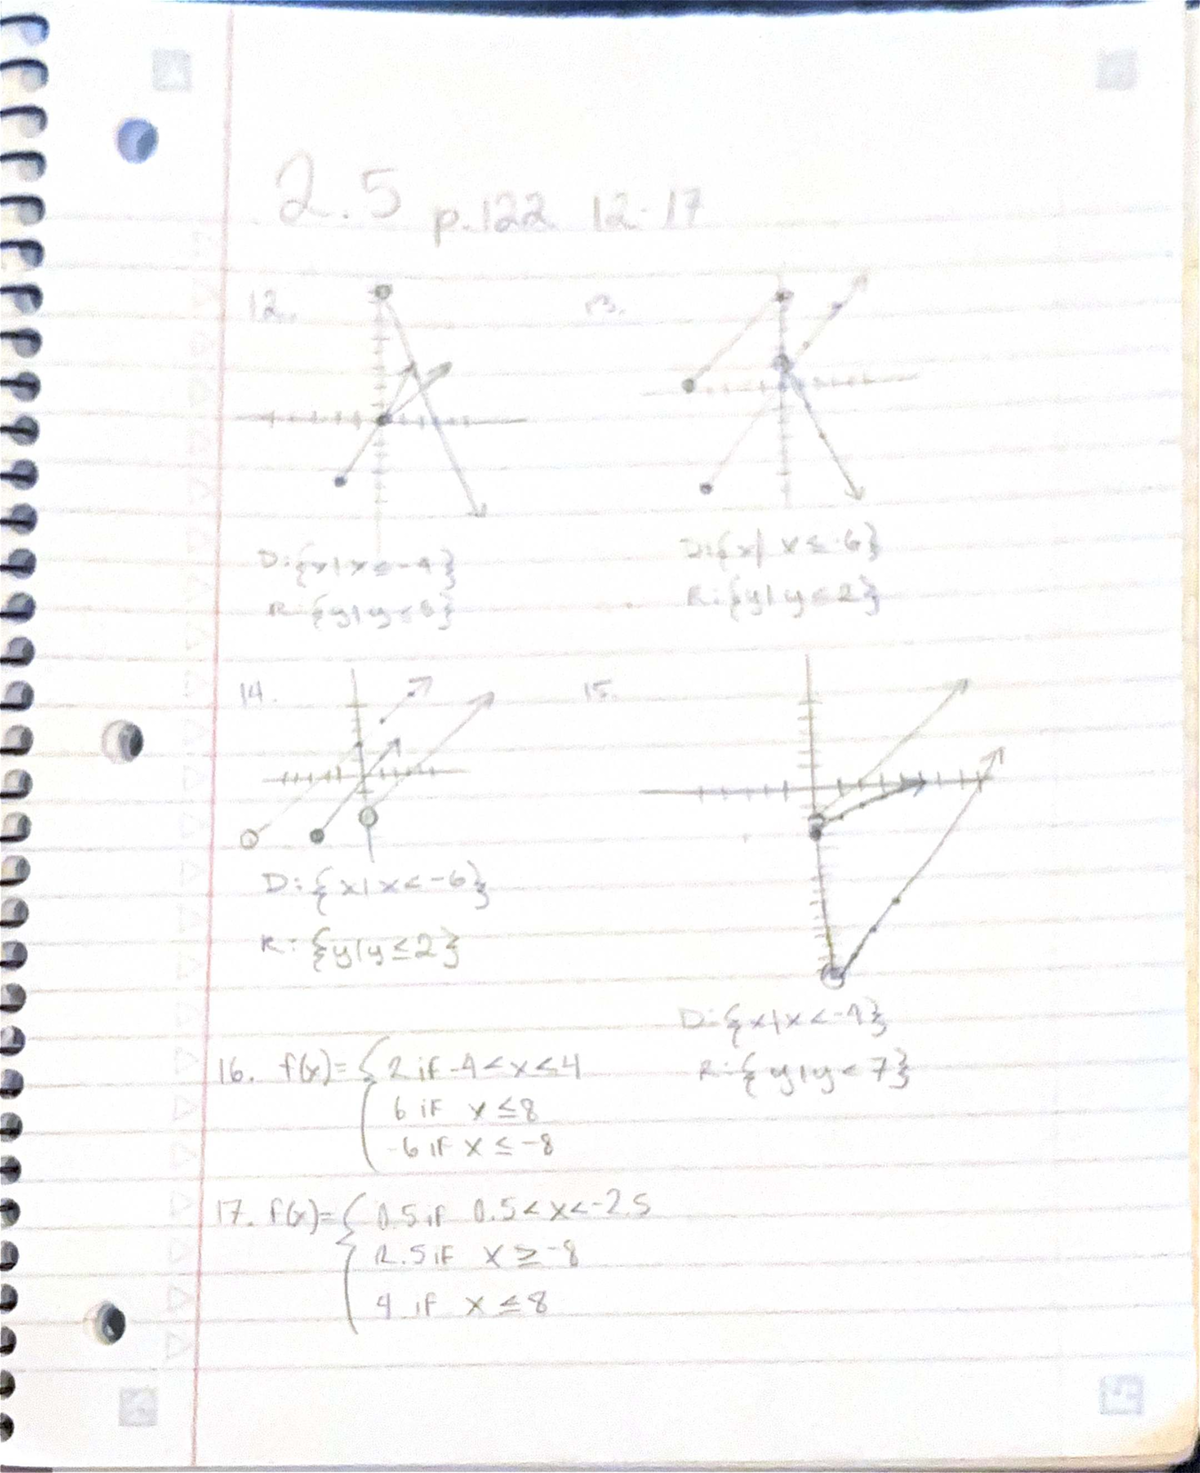 2.5 p.122 12-17
12.
13.
D:{x|x≤-4}
R:{y|y<8}
D:{x| x≤-6}
R:{y|y≤2}
14.
15.
D:{x|x<-6}
R:{y|y≤2}
D:{x|x<-4}
R:{y|y<7}
16. f(x)={2 if -4<x≤4
6 if x≤8
-6 if x≤-8
17. f(x)={0.5 if 0.5<x<-2.5
2.5 if x≥-8
4 if x≤8